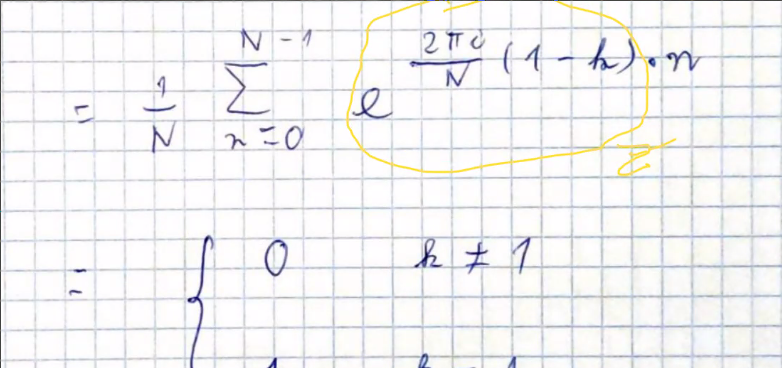 = 1/N Σ_{n=0}^{N-1} e^{2πi/N (1-k)·n}
z
= { 0 k ≠ 1